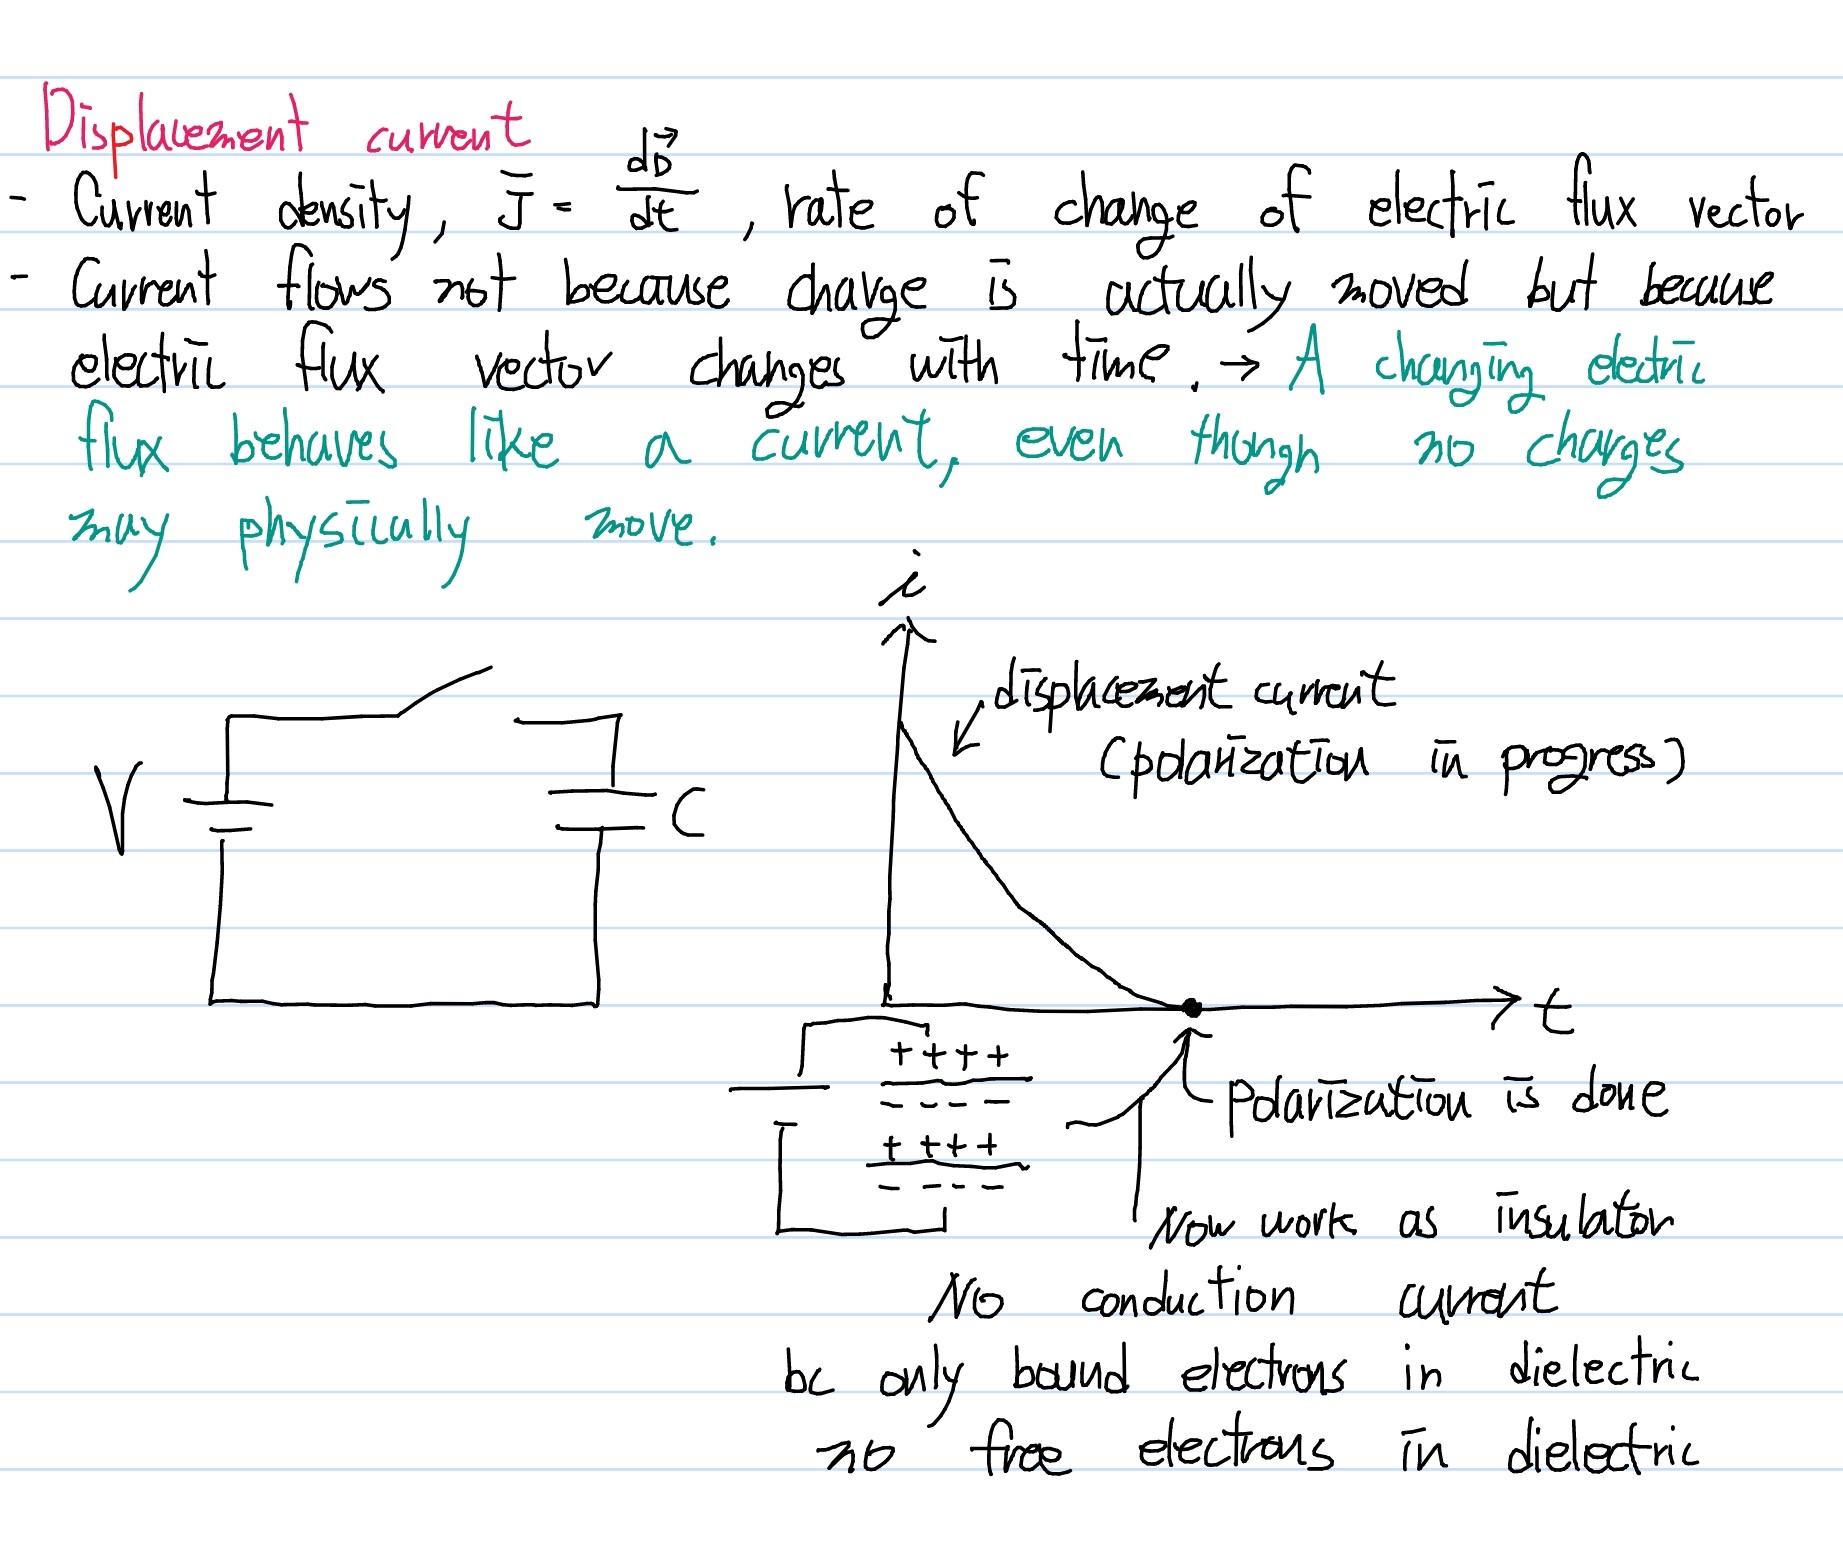 Displacement current
- Current density, J̄ = dD⃗/dt, rate of change of electric flux vector
- Current flows not because charge is actually moved but because
electric flux vector changes with time. → A changing electric
flux behaves like a current, even though no charges
may physically move.
i
displacement current
(polarization in progress)
V
C
t
+ + + +
- - - -
Polarization is done
+ + + +
- - - -
Now work as insulator
No conduction current
bc only bound electrons in dielectric
no free electrons in dielectric